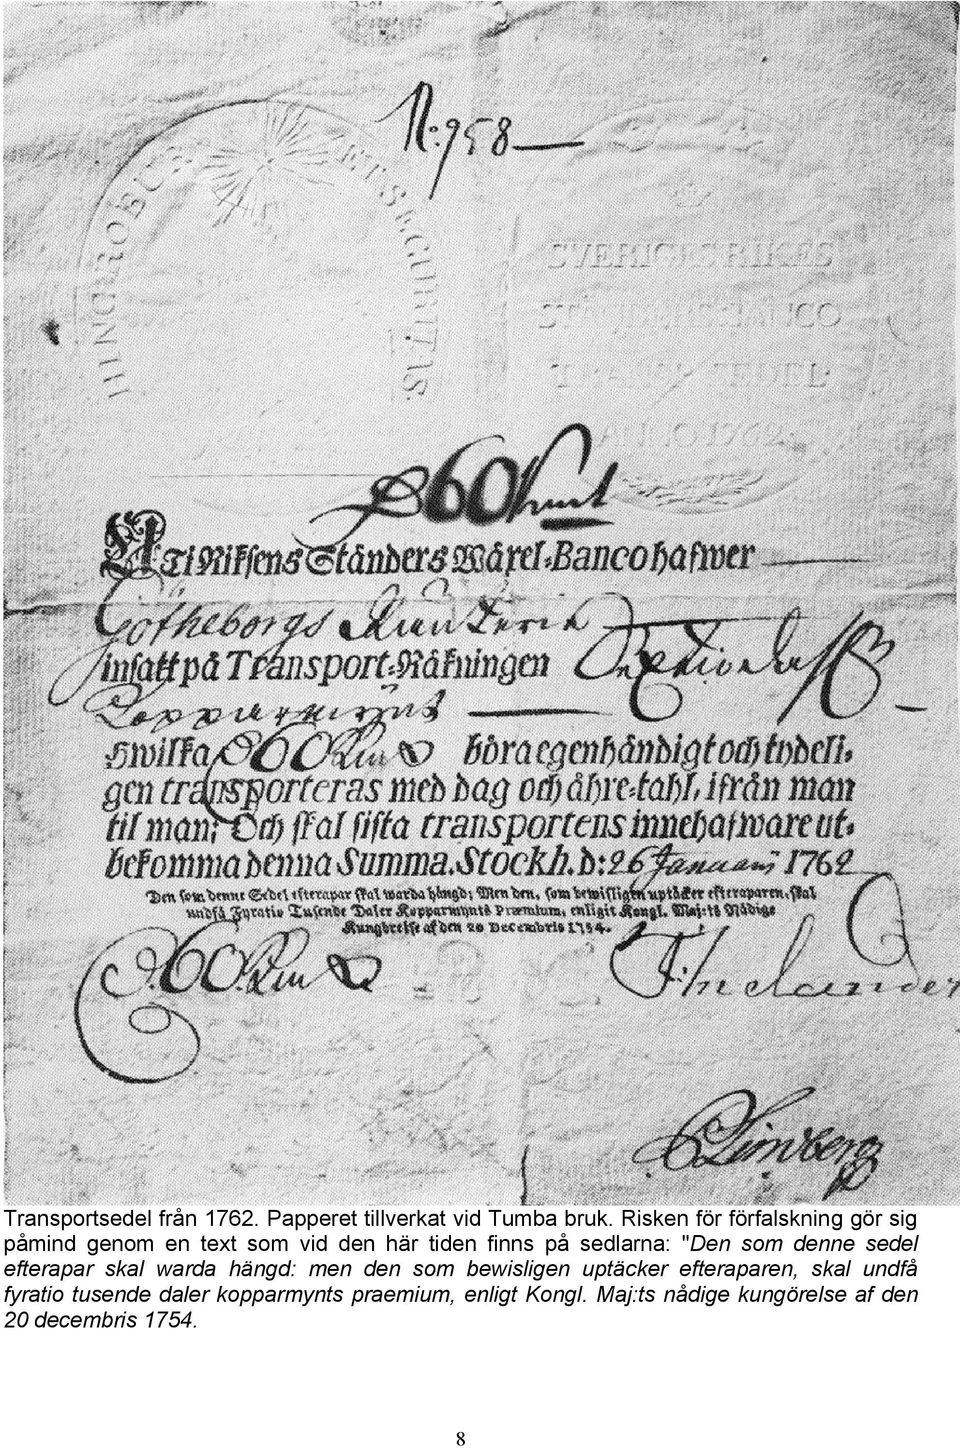 N:o 958
HINC ROBUR ET SECURITAS
SVERIGES RIKES
STÄNDERS BANCO
60
UTi Riksens Ständers Wäxel-Banco hafwer
Götheborgs
insatt på Transport-Räkningen Sextio
Kopparmynt
Hwilka 60 böra egenhändigt och tydeli-
gen transporteras med dag och åhre-tahl, ifrån man
til man; Och skal sista transportens innehafware ut-
bekomma denna Summa. Stockh. D: 26 Januarii 1762
Den som denne Sedel efterapar skal warda hängd; Men den, som bewisligen uptäcker efteraparen, skal
undfå Fyratio Tusende Daler Kopparmynts Præmium, enligit Kongl. Maj:ts Nådige
Kungörelse af den 20 Decembris 1754.
60
Limberg
Transportsedel från 1762. Papperet tillverkat vid Tumba bruk. Risken för förfalskning gör sig
påmind genom en text som vid den här tiden finns på sedlarna: "Den som denne sedel
efterapar skal warda hängd: men den som bewisligen uptäcker efteraparen, skal undfå
fyratio tusende daler kopparmynts praemium, enligt Kongl. Maj:ts nådige kungörelse af den
20 decembris 1754.
8